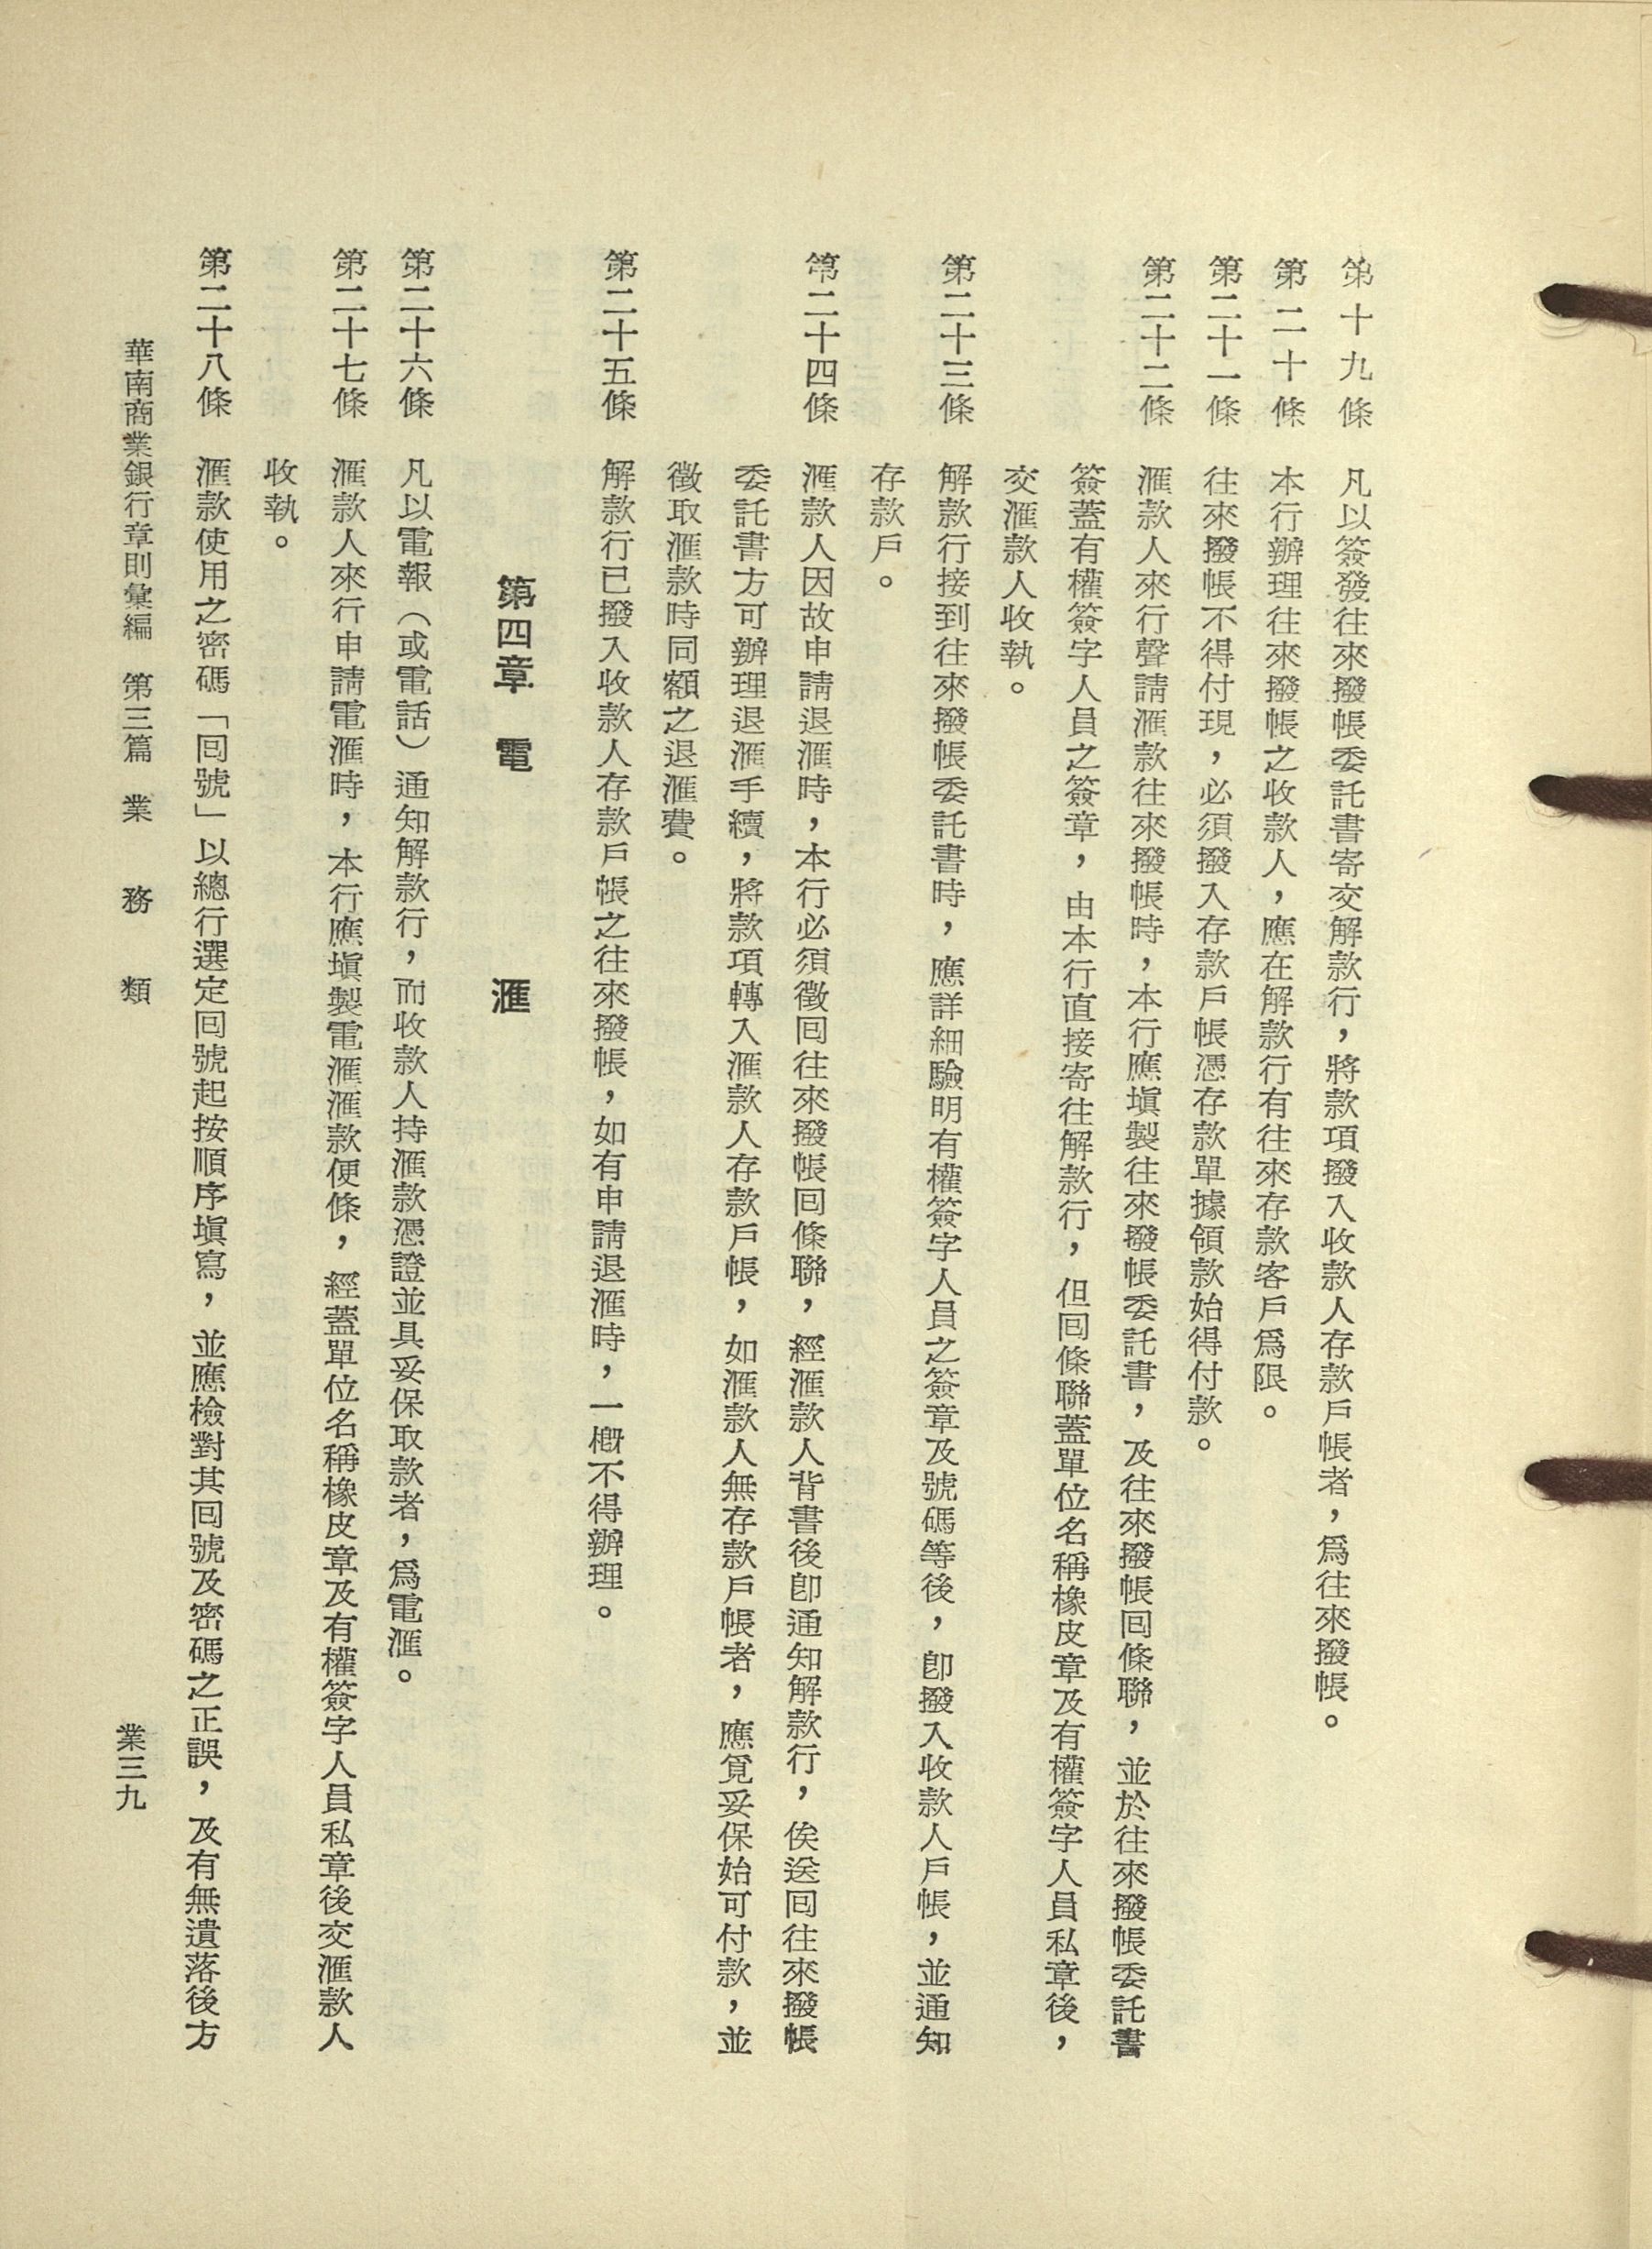 第十九條　凡以簽發往來撥帳委託書寄交解款行，將款項撥入收款人存款戶帳者，爲往來撥帳。
第二十條　本行辦理往來撥帳之收款人，應在解款行有往來存款客戶爲限。
第二十一條　往來撥帳不得付現，必須撥入存款戶帳憑存款單據領款始得付款。
第二十二條　滙款人來行聲請滙款往來撥帳時，本行應塡製往來撥帳委託書，及往來撥帳囘條聯，並於往來撥帳委託書
簽蓋有權簽字人員之簽章，由本行直接寄往解款行，但囘條聯蓋單位名稱橡皮章及有權簽字人員私章後，
交滙款人收執。
第二十三條　解款行接到往來撥帳委託書時，應詳細驗明有權簽字人員之簽章及號碼等後，卽撥入收款人戶帳，並通知
存款戶。
第二十四條　滙款人因故申請退滙時，本行必須徵囘往來撥帳囘條聯，經滙款人背書後卽通知解款行，俟送囘往來撥帳
委託書方可辦理退滙手續，將款項轉入滙款人存款戶帳，如滙款人無存款戶帳者，應覓妥保始可付款，並
徵取滙款時同額之退滙費。
第二十五條　解款行已撥入收款人存款戶帳之往來撥帳，如有申請退滙時，一槪不得辦理。
第四章　電　滙
第二十六條　凡以電報（或電話）通知解款行，而收款人持滙款憑證並具妥保取款者，爲電滙。
第二十七條　滙款人來行申請電滙時，本行應塡製電滙滙款便條，經蓋單位名稱橡皮章及有權簽字人員私章後交滙款人
收執。
第二十八條　滙款使用之密碼「囘號」以總行選定囘號起按順序塡寫，並應檢對其囘號及密碼之正誤，及有無遺落後方
華南商業銀行章則彙編　第三篇　業　務　類　業三九